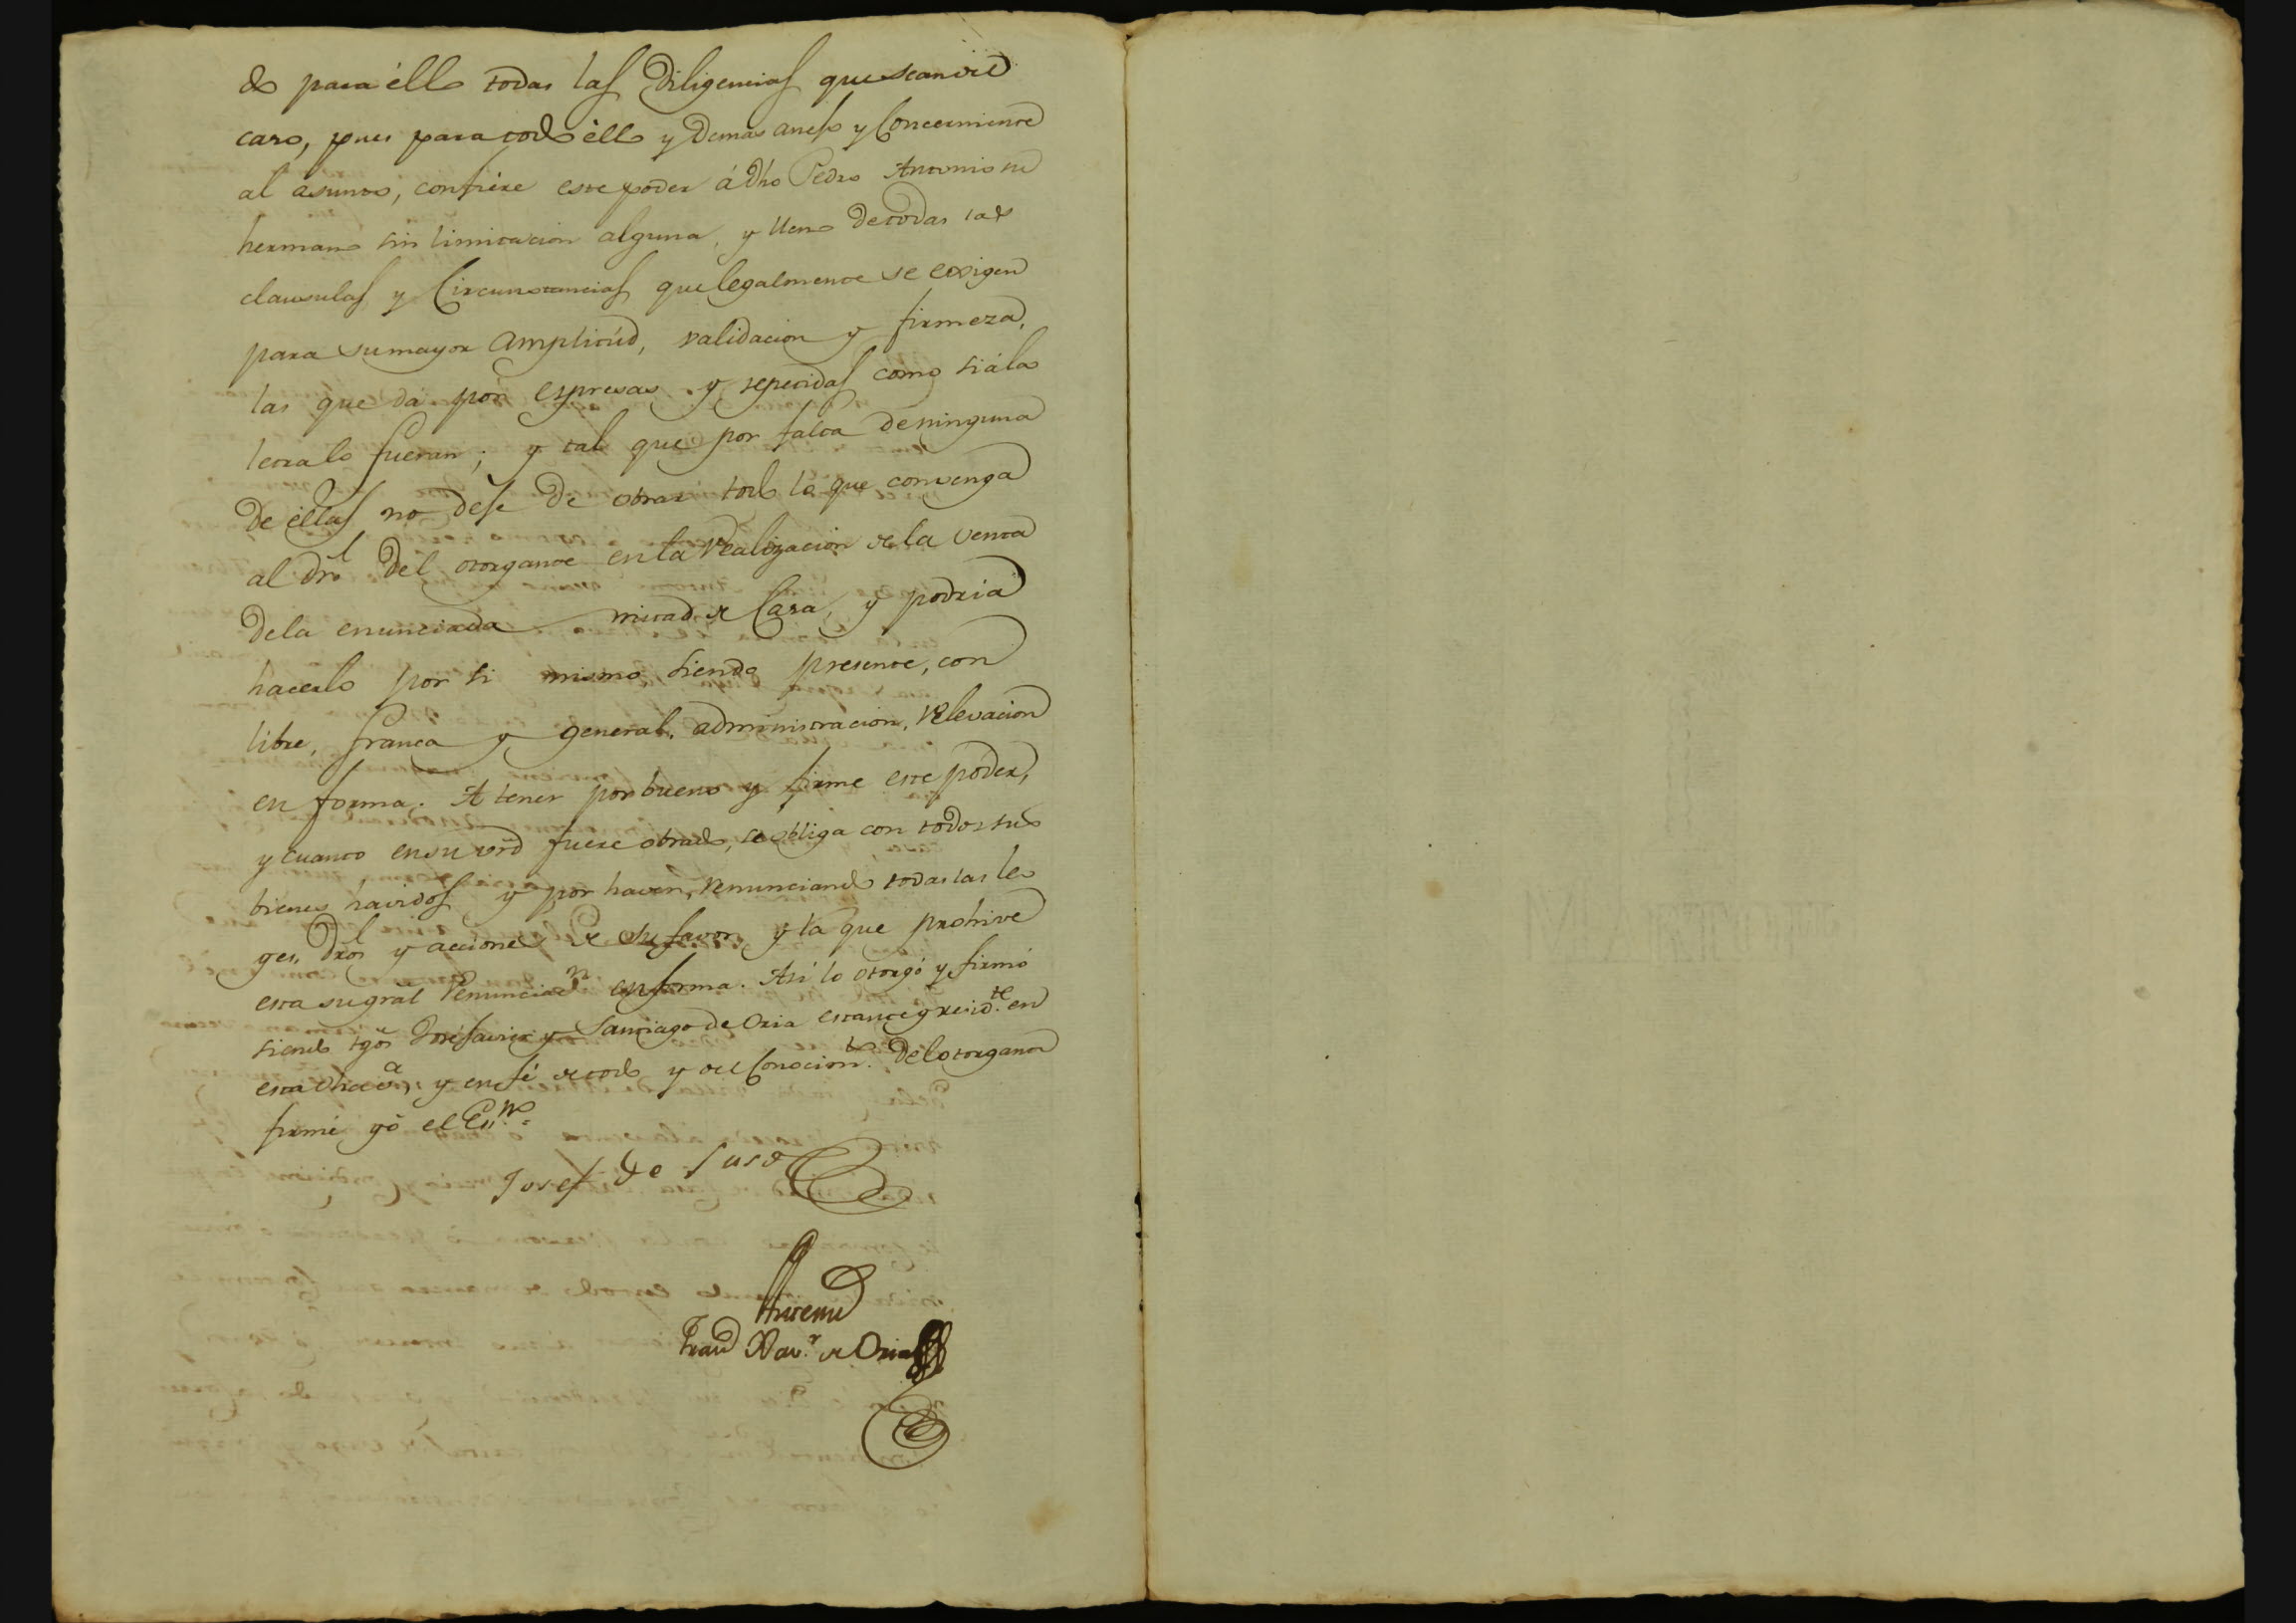 do para éllo todas las Diligencias que sean del
caso, pues para todo éllo y Demas anejo y Concerniente
al ásunto, confiere este poder á Dho Pedro Antonio su
hermano sin limitacion alguna, y lleno de todas las
clausulas y Circunstancias que legalmente se exigen
para su mayor Amplitúd, validacion y firmeza,
las que da por espresas y repetidas como si á la
letra lo fueran; y tal que por falta de ninguna
de éllas no deje de obrar todo lo que convenga
al dro del otorgante en la Realizacion de la venta
de la enunciada mitad de Casa, y podria
hacerlo por si mismo siendo presente, con
libre, franca y general administracion, Relevacion
en forma. A tener por bueno y firme este poder,
y cuanto en su vrd fuere obrado, se obliga con todos sus
bienes havidos y por haver, Renunciando todas las le
yes, Dros y acciones de su favor y la que prohive
esta su gral Renunciacn en forma. Asi lo otorgó y firmó
siendo tgos Santiago de Oria estante y residte en
esta y en fé de todo y del Conocimto del otorgante
firmé yó el Essno
Josef de
Antemi
Franco Xavr de Oria